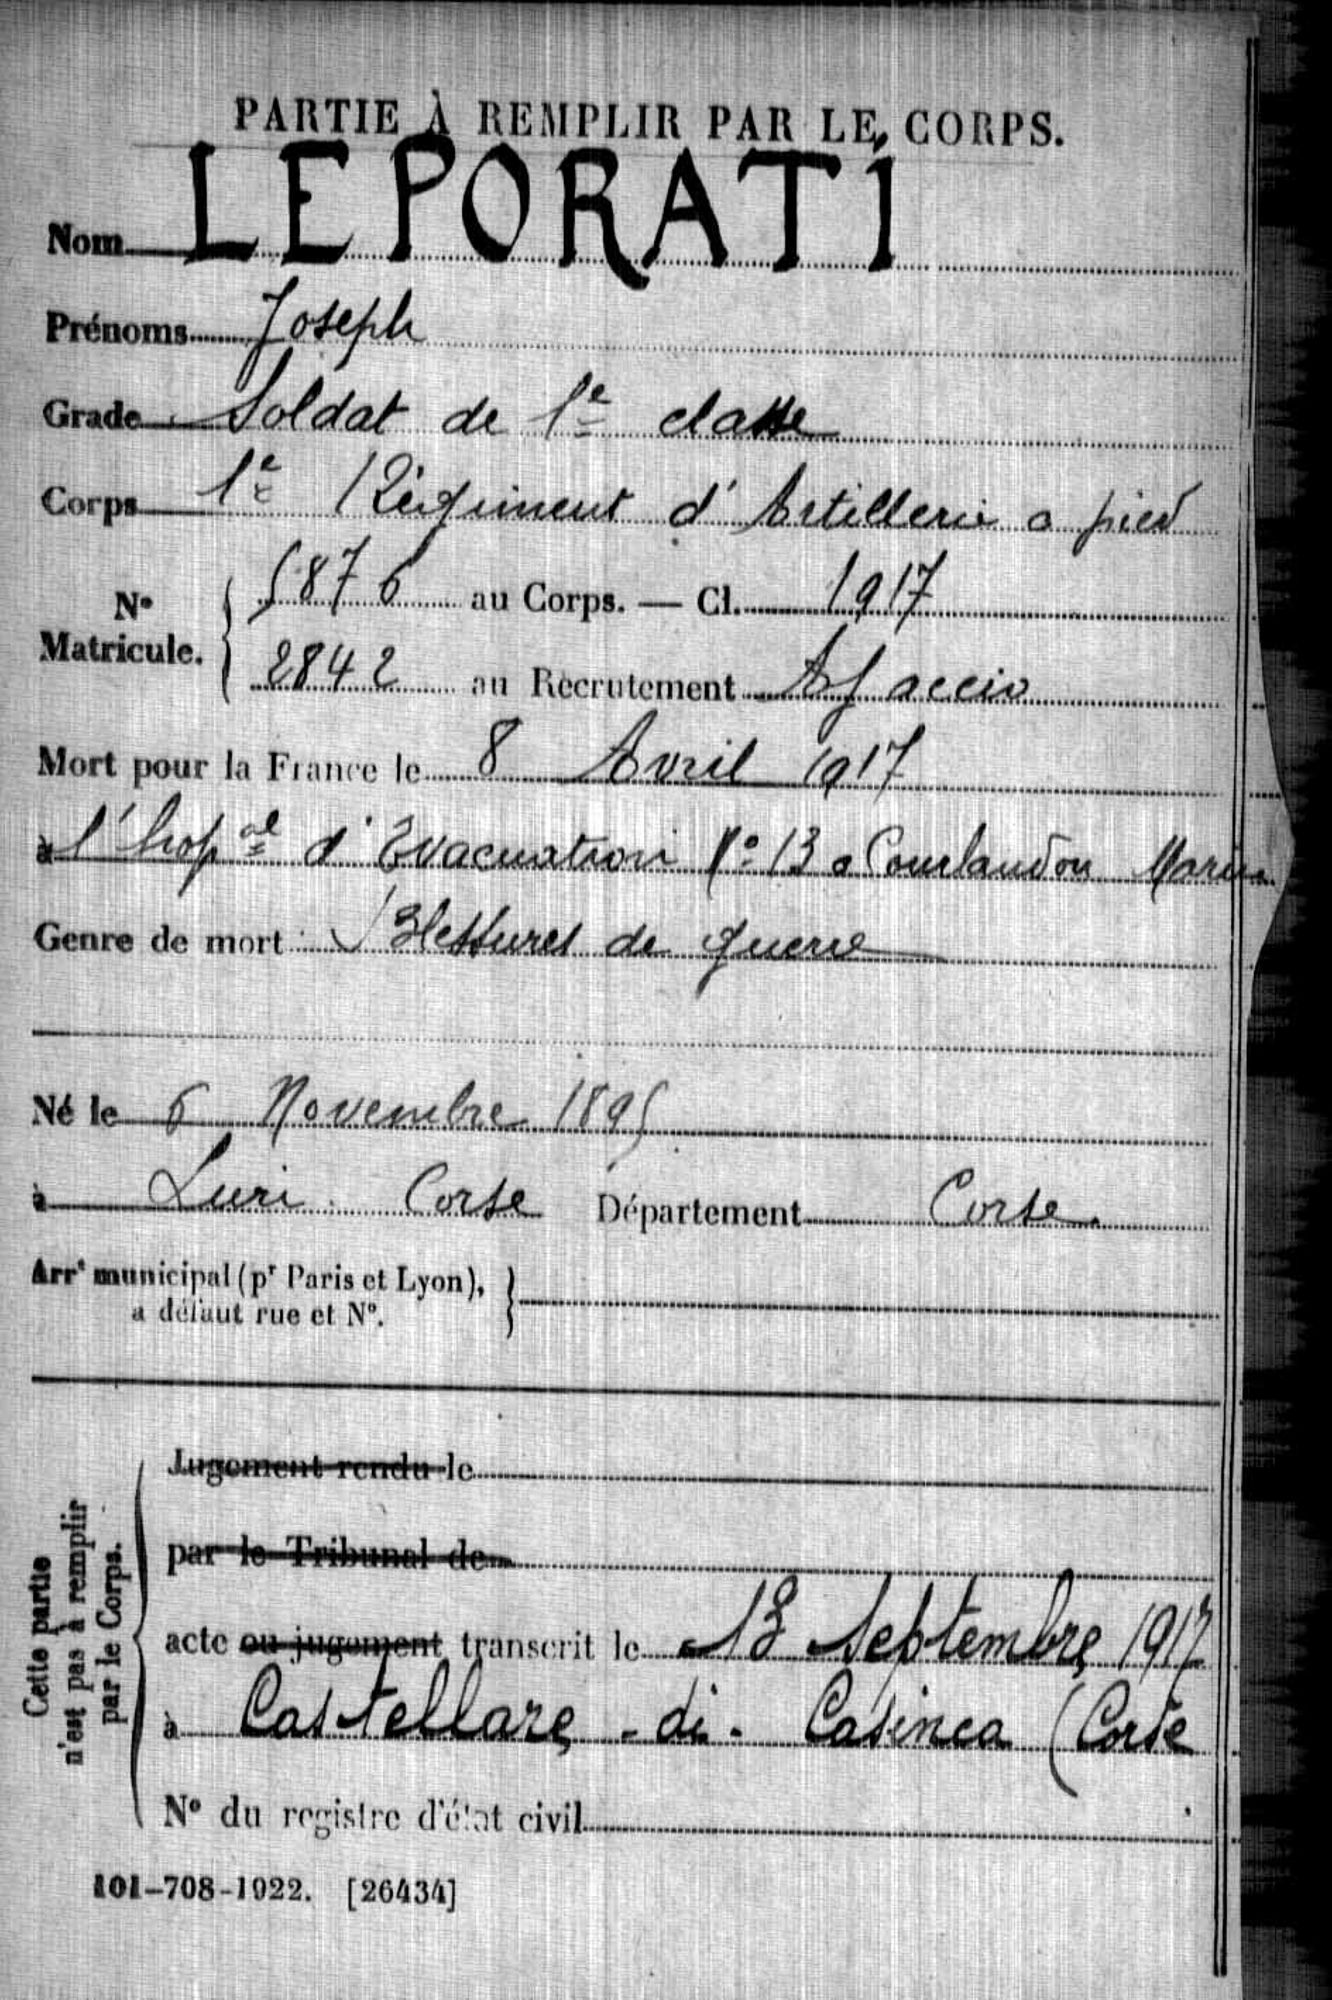 PARTIE À REMPLIR PAR LE CORPS.
Nom LEPORATI
Prénoms Joseph
Grade Soldat de 1e classe
Corps 1e Régiment d'Artillerie a pied
No Matricule. { 5876 au Corps. — Cl. 1917
2842 au Recrutement Ajaccio
Mort pour la France le 8 Avril 1917
à l'hopal d'Evacuation No 13 a Courlandon Marne
Genre de mort Blessures de guerre
Né le 6 Novembre 1895
à Luri Corse Département Corse.
Arrt municipal (pr Paris et Lyon), }
a défaut rue et No.
Cette partie
n'est pas à remplir
par le Corps.
Jugement rendu le
par le Tribunal de
acte ou jugement transcrit le 13 Septembre 1917
à Castellare - di - Casinca (Corse
No du registre d'état civil
101-708-1922. [26434]